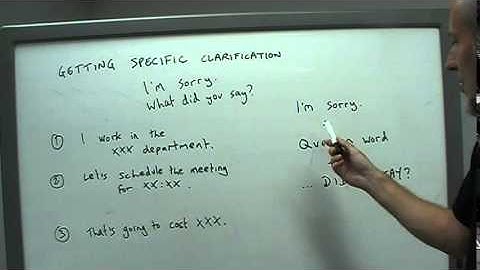 GETTING SPECIFIC CLARIFICATION
I'm sorry.
What did you say?
① I work in the
XXX department.
② Let's schedule the meeting
for XX:XX.
③ That's going to cost XXX.
I'm sorry.
word
... SAY?